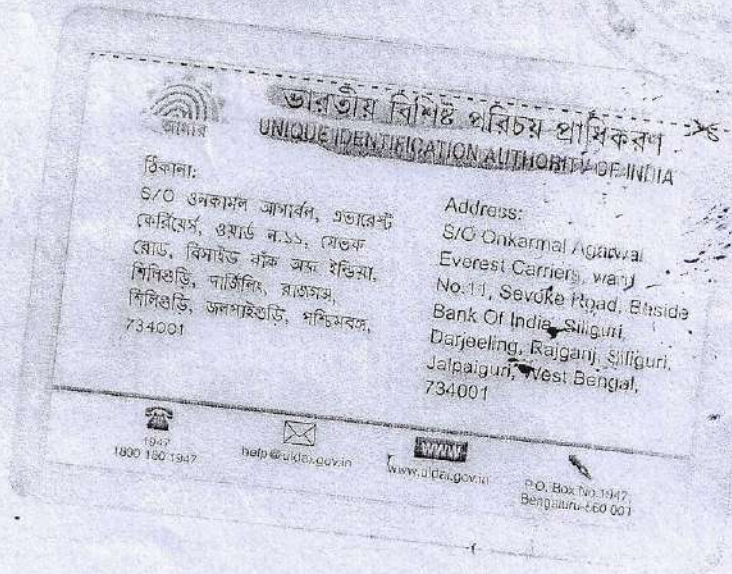 আধার
ভারতীয় বিশিষ্ট পরিচয় প্রাধিকরণ
UNIQUE IDENTIFICATION AUTHORITY OF INDIA
ঠিকানা:
S/O ওনকামল আগার্বল, এভারেস্ট
কেরিয়ের্স, ওয়ার্ড ন.১১, সেভক
রোড, বিসাইড বাঁক অফ ইন্ডিয়া,
শিলিগুড়ি, দার্জিলিং, রাজগঞ্জ,
শিলিগুড়ি, জলপাইগুড়ি, পশ্চিমবঙ্গ,
734001
Address:
S/O Onkarmal Agarwal
Everest Carriers, ward
No.11, Sevoke Road, Biside
Bank Of India, Siliguri,
Darjeeling, Rajganj, Siliguri,
Jalpaiguri, West Bengal,
734001
1947
1800 180 1947
help@uidai.gov.in
www
www.uidai.gov.in
P.O. Box No.1947,
Bengaluru-560 001